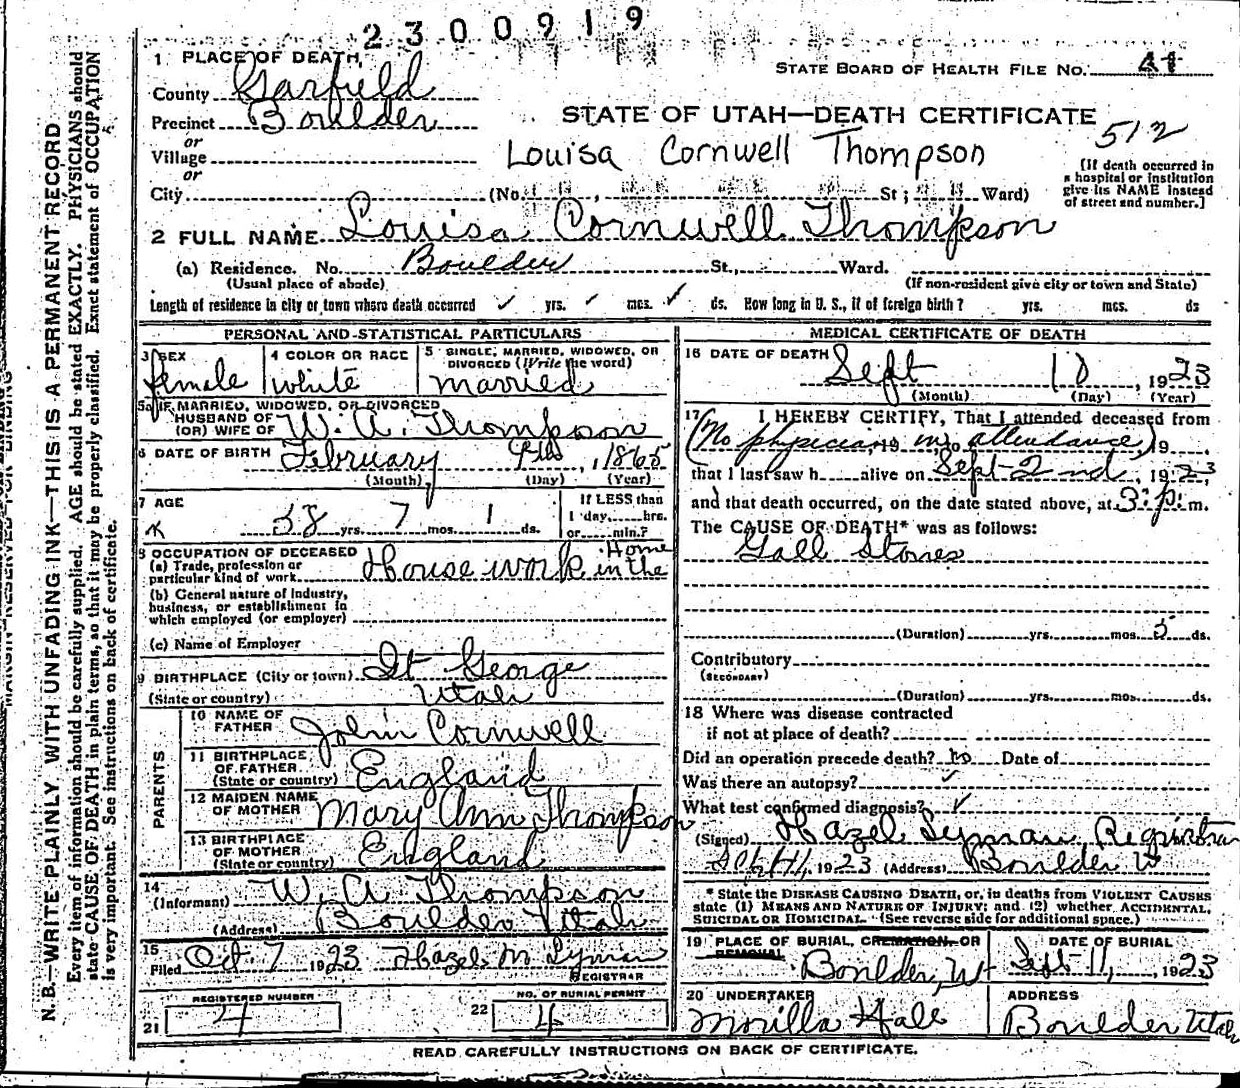 2300919
1 PLACE OF DEATH
STATE BOARD OF HEALTH FILE No. 41
County Garfield
Precinct Boulder
STATE OF UTAH—DEATH CERTIFICATE
512
or
Village
Louisa Cornwell Thompson
or
[If death occurred in
a hospital or institution
give its NAME instead
of street and number.]
City (No. , St; Ward)
2 FULL NAME Louisa Cornwell Thompson
(a) Residence. No. Boulder St., Ward.
(Usual place of abode) (If non-resident give city or town and State)
Length of residence in city or town where death occurred ✓ yrs. ✓ mos. ✓ ds. How long in U. S., if of foreign birth? yrs. mos. ds
PERSONAL AND STATISTICAL PARTICULARS
3 SEX
female
4 COLOR OR RACE
white
5 SINGLE, MARRIED, WIDOWED, OR
DIVORCED (Write the word)
married
5a IF MARRIED, WIDOWED, OR DIVORCED
HUSBAND OF
(OR) WIFE OF W. A. Thompson
6 DATE OF BIRTH February 9th, 1865
(Month) (Day) (Year)
7 AGE
58 yrs. 7 mos. 1 ds.
If LESS than
1 day, hrs.
or min.?
8 OCCUPATION OF DECEASED
(a) Trade, profession or
particular kind of work House work in the Home
(b) General nature of Industry,
business, or establishment in
which employed (or employer)
(c) Name of Employer
9 BIRTHPLACE (City or town) St George
(State or country) Utah
PARENTS
10 NAME OF
FATHER John Cornwell
11 BIRTHPLACE
OF FATHER
(State or country) England
12 MAIDEN NAME
OF MOTHER Mary Ann Thompson
13 BIRTHPLACE
OF MOTHER
(State or country) England
14
(Informant) W. A. Thompson
(Address) Boulder Utah
15
Filed Oct 7 1923 Hazel M Lyman
REGISTRAR
21 REGISTERED NUMBER
4
22 NO. OF BURIAL PERMIT
4
MEDICAL CERTIFICATE OF DEATH
16 DATE OF DEATH Sept 10, 1923
(Month) (Day) (Year)
17 I HEREBY CERTIFY, That I attended deceased from
(No physician, 19 in, to attendance) 19
that I last saw h alive on Sept 2nd, 1923,
and that death occurred, on the date stated above, at 3:p.m.
The CAUSE OF DEATH* was as follows:
Gall Stones
(Duration) yrs. mos. 5 ds.
Contributory
(SECONDARY)
(Duration) yrs. mos. ds.
18 Where was disease contracted
if not at place of death?
Did an operation precede death? no Date of
Was there an autopsy? ✓
What test confirmed diagnosis? ✓
(Signed) Hazel Lyman Registrar
Sept 11, 1923 (Address) Boulder Ut
* State the DISEASE CAUSING DEATH, or, in deaths from VIOLENT CAUSES
state (1) MEANS AND NATURE OF INJURY; and (2) whether ACCIDENTAL,
SUICIDAL OR HOMICIDAL. (See reverse side for additional space.)
19 PLACE OF BURIAL, CREMATION, OR
REMOVAL
Boulder, Ut
DATE OF BURIAL
Sept 11, 1923
20 UNDERTAKER
Morilla Hale
ADDRESS
Boulder Utah
READ CAREFULLY INSTRUCTIONS ON BACK OF CERTIFICATE.
MARGIN RESERVED FOR BINDING
N. B.—WRITE PLAINLY WITH UNFADING INK—THIS IS A PERMANENT RECORD
Every item of information should be carefully supplied. AGE should be stated EXACTLY. PHYSICIANS should
state CAUSE OF DEATH in plain terms, so that it may be properly classified. Exact statement of OCCUPATION
is very important. See instructions on back of certificate.